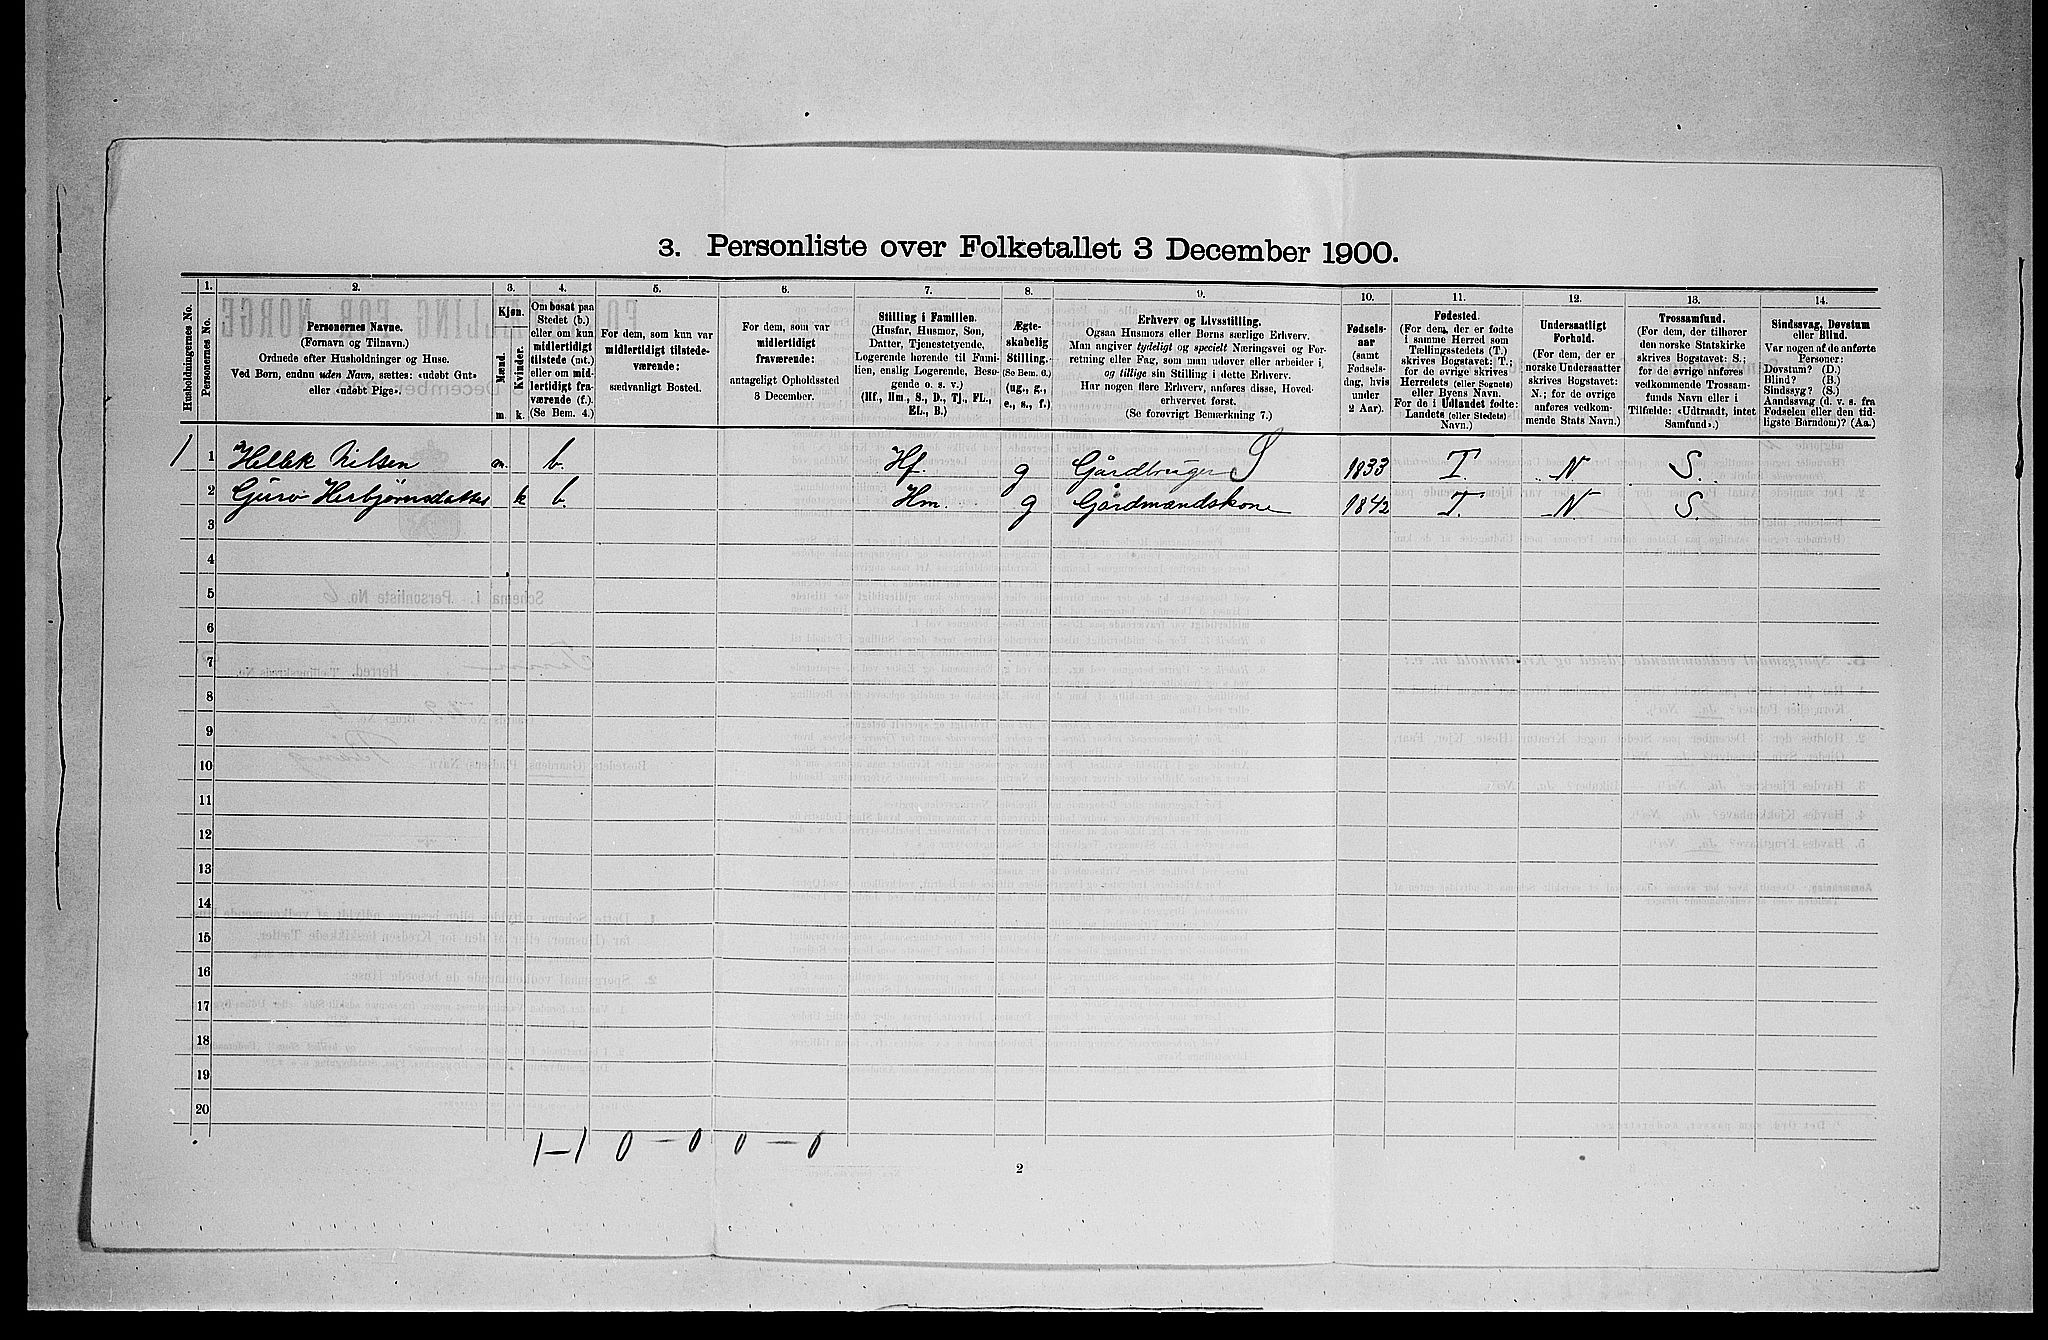 3. Personliste over Folketallet 3 December 1900.
1. 2. 3. 4. 5. 6. 7. 8. 9. 10. 11. 12. 13. 14.
Husholdningernes No.
Personernes No.
Personernes Navne.
(Fornavn og Tilnavn.)
Ordnede efter Husholdninger og Huse.
Ved Børn, endnu uden Navn, sættes: «udøbt Gut»
eller «udøbt Pige».
Kjøn.
Mænd.
Kvinder.
m. k.
Om bosat paa
Stedet (b.)
eller om kun
midlertidigt
tilstede (mt.)
eller om mid-
lertidigt fra-
værende (f.).
(Se Bem. 4.)
For dem, som kun var
midlertidigt tilstede-
værende:
sædvanligt Bosted.
For dem, som var
midlertidigt
fraværende:
antageligt Opholdssted
3 December.
Stilling i Familien.
(Husfar, Husmor, Søn,
Datter, Tjenestetyende,
Logerende hørende til Fami-
lien, enslig Logerende, Besø-
gende o. s. v.)
(Hf., Hm., S., D., Tj., FL.,
EL., B.)
Ægte-
skabelig
Stilling.
(Se Bem. 6.)
(ug., g.,
e., s., f.)
Erhverv og Livsstilling.
Ogsaa Husmors eller Børns særlige Erhverv.
Man angiver tydeligt og specielt Næringsvei og For-
retning eller Fag, som man udøver eller arbeider i,
og tillige sin Stilling i dette Erhverv.
Har nogen flere Erhverv, anføres disse, Hoved-
erhvervet først.
(Se forøvrigt Bemerkning 7.)
Fødsels-
aar
(samt
Fødsels-
dag, hvis
under
2 Aar).
Fødested.
(For dem, der er fødte
i samme Herred som
Tællingsstedets (T.)
skrives Bogstavet: T.;
for de øvrige skrives
Herredets (eller Sognets)
eller Byens Navn.
For de i Udlandet fødte:
Landets (eller Stedets)
Navn.)
Undersaatligt
Forhold.
(For dem, der er
norske Undersaatter
skrives Bogstavet:
N.; for de øvrige
anføres vedkom-
mende Stats Navn.)
Trossamfund.
(For dem, der tilhører
den norske Statskirke
skrives Bogstavet: S.;
for de øvrige anføres
vedkommende Trossam-
funds Navn eller i
Tilfælde: «Udtraadt, intet
Samfund».)
Sindssvag, Døvstum
eller Blind.
Var nogen af de anførte
Personer:
Døvstum? (D.)
Blind? (B.)
Sindssyg? (S.)
Aandssvag (d. v. s. fra
Fødselen eller den tid-
ligste Barndom)? (Aa.)
1 1 Hellek Nilsen m. b. Hf. g Gårdbruger S 1833 T. N S.
2 Guro Herbjørnsdatter k b. Hm. g Gårdmandskone 1842 T. N. S.
3
4
5
6
7
8
9
10
11
12
13
14
15
16
17
18
19
20
1–1 0–0 0–0
2